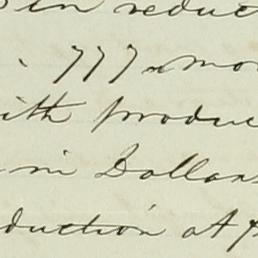 in reduc
777 mo
ith produc
in Dollars
duction at